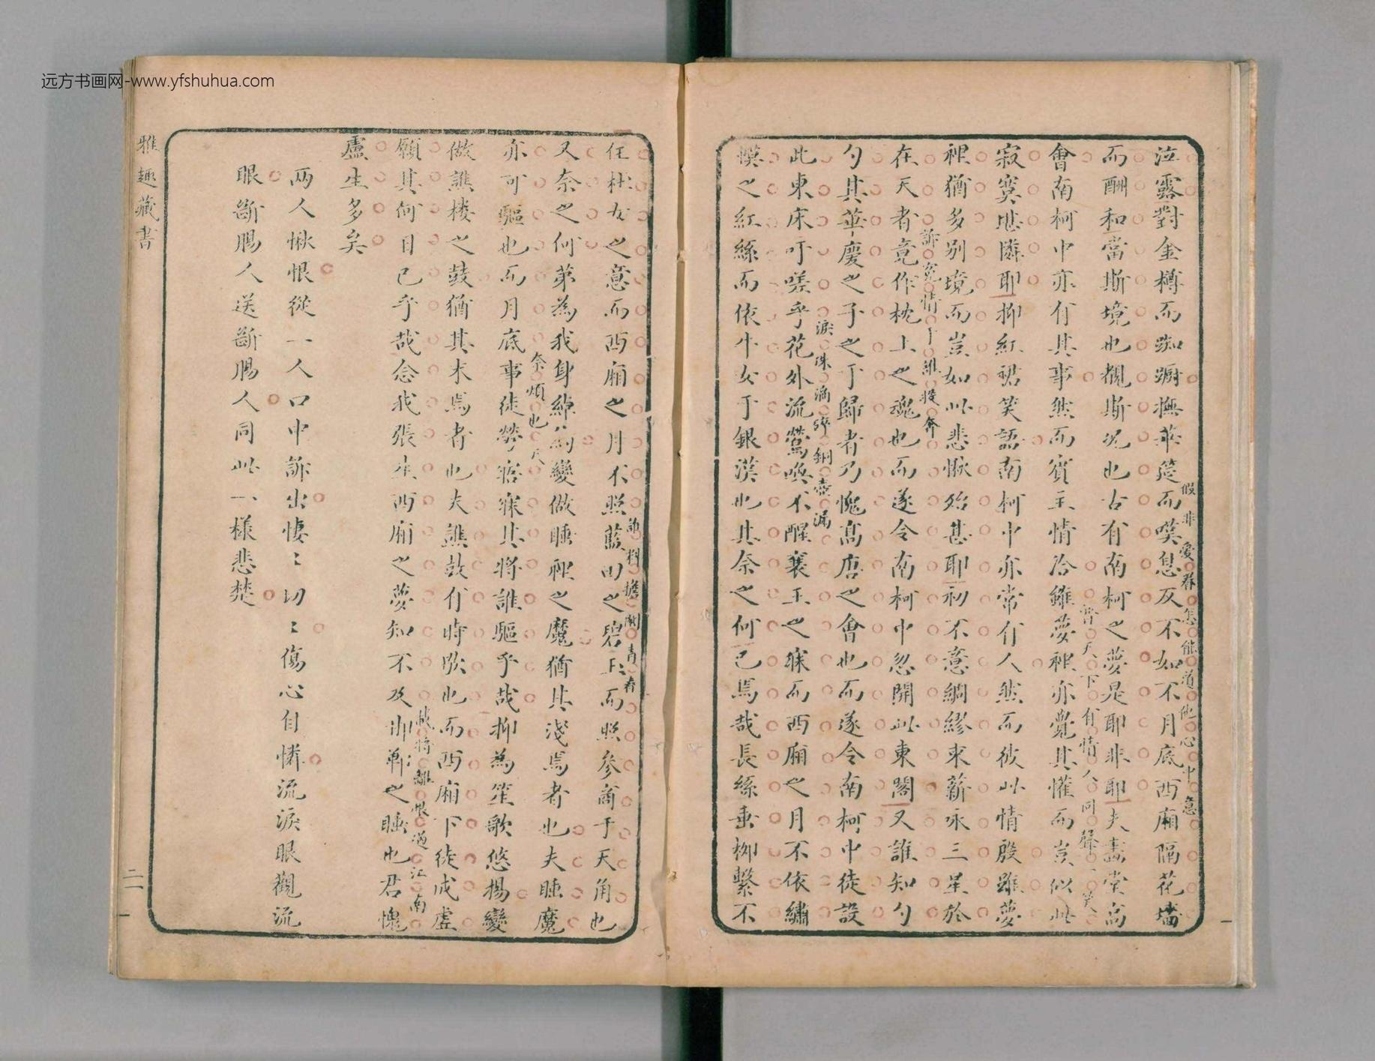 远方书画网-www.yfshuhua.com
泣露對金樽而踟躕撫華筵而嘆息反不如不月底西廂隔花墻
假非愛春怎能道他心中意
而酬和當斯境也覩斯况也古有南柯之夢是耶非耶夫壽堂高
會南柯中亦有其事然而賓主情洽雖夢裡亦覺其懽而豈似此
普天下有情人同聲一哭
寂寞堪隣耶抑紅裙笑語南柯中亦常有人然而彼此情殷雖夢
裡猶多別境而豈如此悲愀殆甚耶初不意綢繆束薪咏三星於
訴衷情
在天者竟作枕上之魂也而遂令南柯中忽開此東閣又誰知勺
勺其華慶之子之于歸者乃愧高唐之會也而遂令南柯中徒設
此東床吁嗟乎花外流鶯喚不醒襄王之寐而西廂之月不依繡
淚珠滴碎銅壺漏
幙之紅絲而依牛女于銀漢也其奈之何已焉哉長絲垂柳繫不
住杜女之意而西廂之月不照藍田之碧玉而照參商于天角也
又奈之何第為我身綽為變做睡裡之魔猶其淺焉者也夫睡魔
亦可驅也而月底事徒勞寤寐其將誰驅乎哉抑為笙歌悠揚變
做譙楼之鼓猶其末焉者也夫譙鼓有時歇也而西廂下徒成虛
願其何日已乎哉念我張生西廂之夢知不及邯鄲之睡也君懷
慮生多矣
兩人愀恨從一人口中訴出悽〻切〻傷心自憐流淚眼觀流
眼斷腸人送斷腸人同此一樣悲楚
雅趣藏書